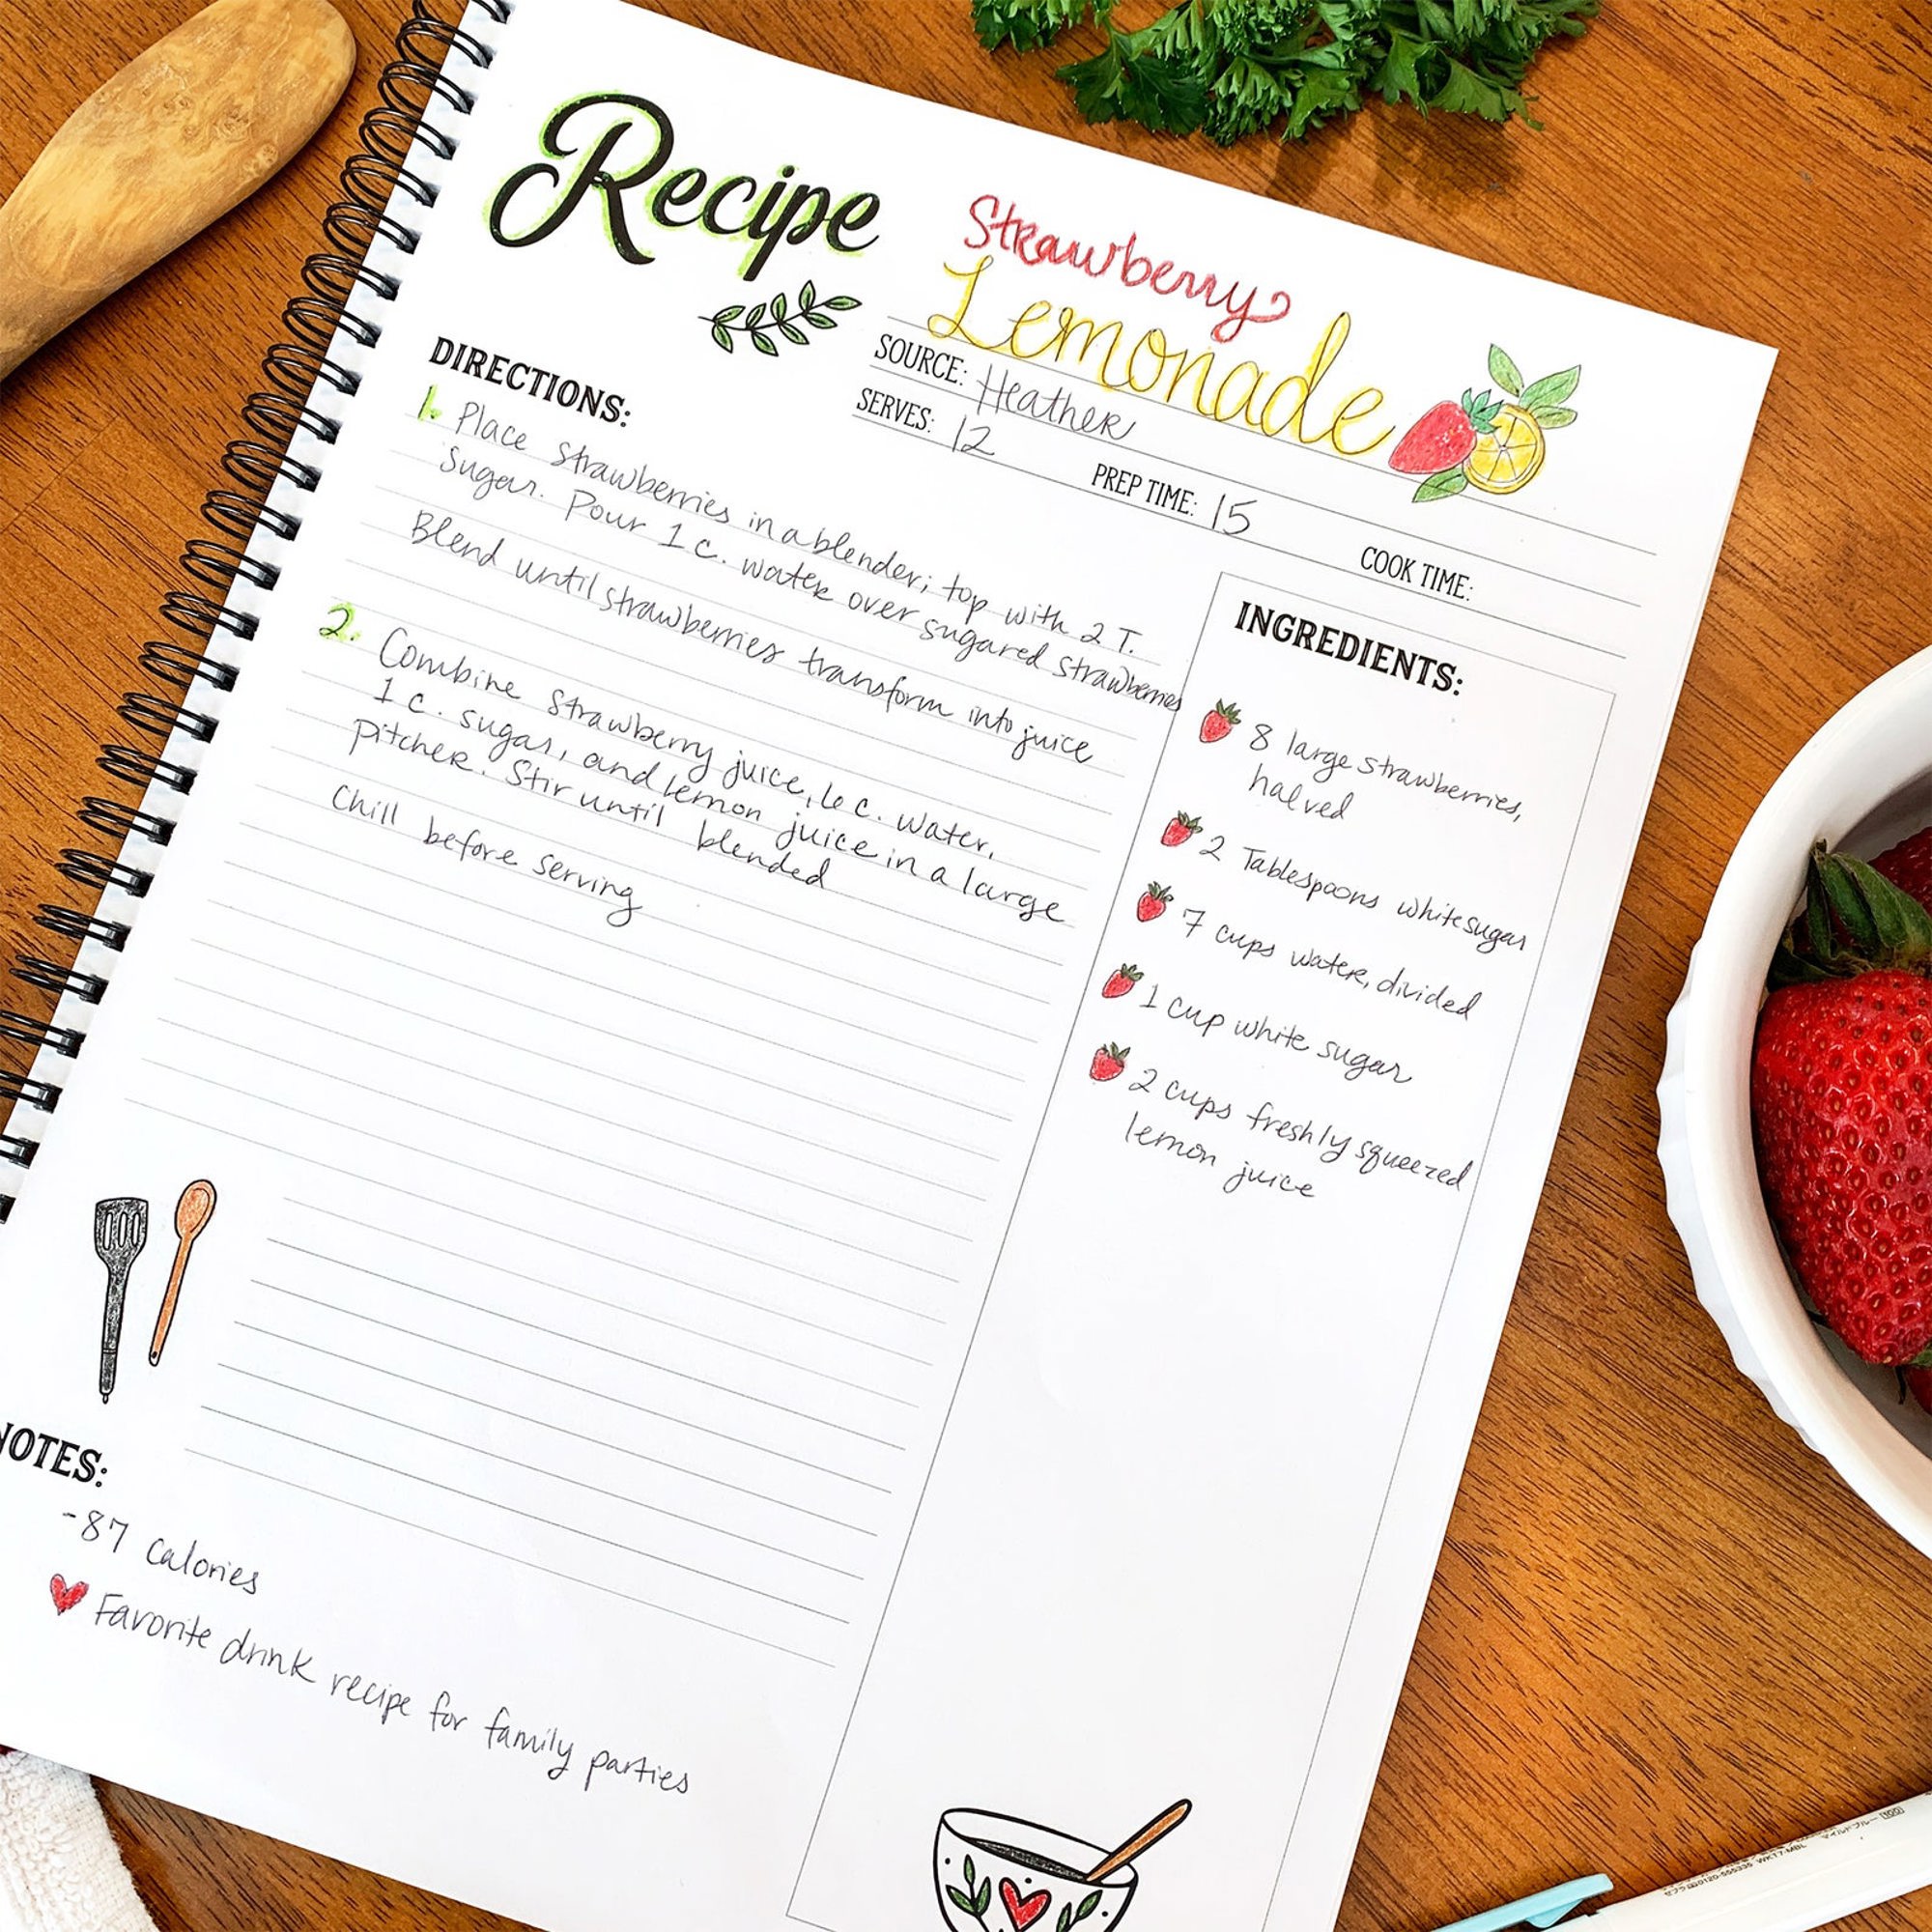 Recipe
Strawberry
Lemonade
SOURCE: Heather
SERVES: 12
PREP TIME: 15
COOK TIME:
DIRECTIONS:
1. Place strawberries in a blender; top with 2 T.
sugar. Pour 1 c. water over sugared strawberries
Blend until strawberries transform into juice
2. Combine strawberry juice, 6 c. water,
1 c. sugar, and lemon juice in a large
pitcher. Stir until blended
Chill before serving
INGREDIENTS:
8 large strawberries,
halved
2 Tablespoons white sugar
7 cups water, divided
1 cup white sugar
2 cups freshly squeezed
lemon juice
NOTES:
-87 calories
Favorite drink recipe for family parties
WKT7-MBL